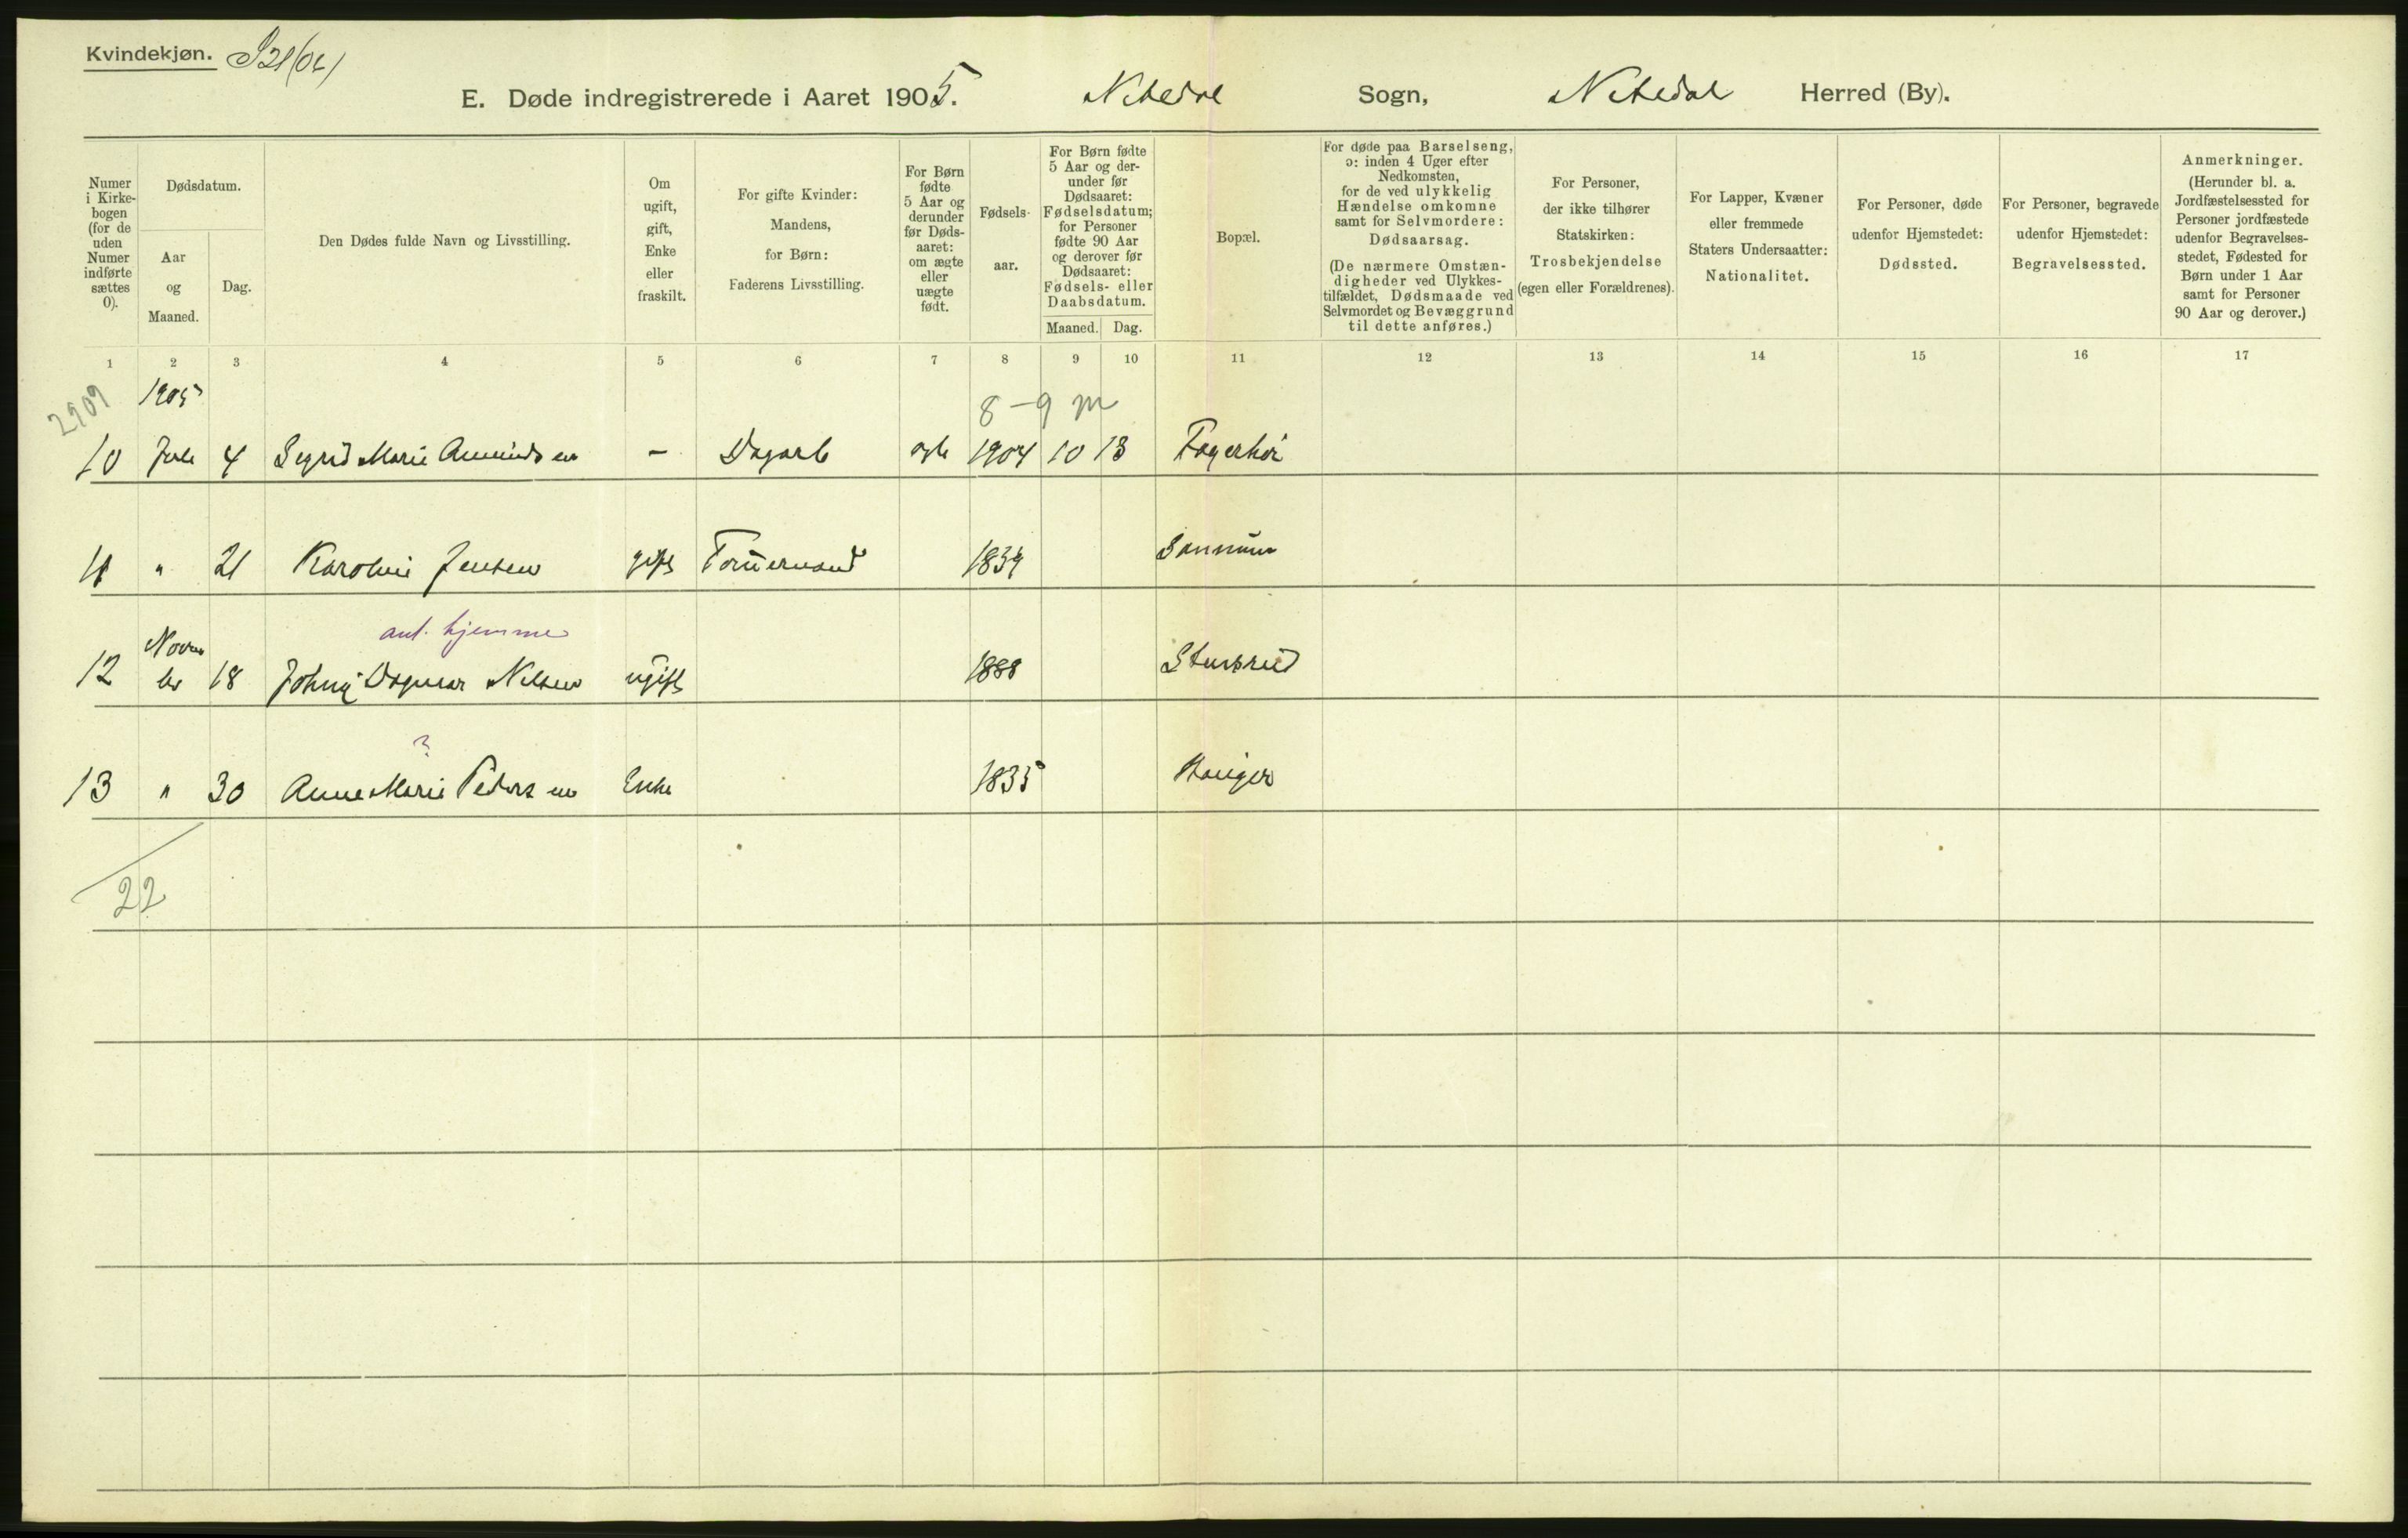 Kvindekjøn.
E. Døde indregistrerede i Aaret 1905. Nitedal Sogn, Nitedal Herred (By).
Numer i Kirke-bogen (for de uden Numer indførte sættes 0).
Dødsdatum.
Aar og Maaned.
Dag.
Den Dødes fulde Navn og Livsstilling.
Om ugift, gift, Enke eller fraskilt.
For gifte Kvinder: Mandens, for Børn: Faderens Livsstilling.
For Børn fødte 5 Aar og derunder før Døds-aaret: om ægte eller uægte født.
Fødsels-aar.
For Børn fødte 5 Aar og der-under før Dødsaaret: Fødselsdatum; for Personer fødte 90 Aar og derover før Dødsaaret: Fødsels- eller Daabsdatum.
Maaned. Dag.
Bopæl.
For døde paa Barselseng, ɔ: inden 4 Uger efter Nedkomsten, for de ved ulykkelig Hændelse omkomne samt for Selvmordere: Dødsaarsag. (De nærmere Omstæn-digheder ved Ulykkes-tilfældet, Dødsmaade ved Selvmordet og Bevæggrund til dette anføres.)
For Personer, der ikke tilhører Statskirken: Trosbekjendelse (egen eller Forældrenes).
For Lapper, Kvæner eller fremmede Staters Undersaatter: Nationalitet.
For Personer, døde udenfor Hjemstedet: Dødssted.
For Personer, begravede udenfor Hjemstedet: Begravelsessted.
Anmerkninger. (Herunder bl. a. Jordfæstelsessted for Personer jordfæstede udenfor Begravelses-stedet, Fødested for Børn under 1 Aar samt for Personer 90 Aar og derover.)
1 2 3 4 5 6 7 8 9 10 11 12 13 14 15 16 17
2909 1905 8-9 m
10 4 Sigrid Marie Amundsen - Dagarb 1904 10 13
11 " 21 Karoline Jensen gift 1834 Sannum
ant. hjemme
12 Novem ber 18 Johny Dagmar Nilsen ugift 1888
?
13 " 30 Anne Marie Pedersen Enke 1835
22